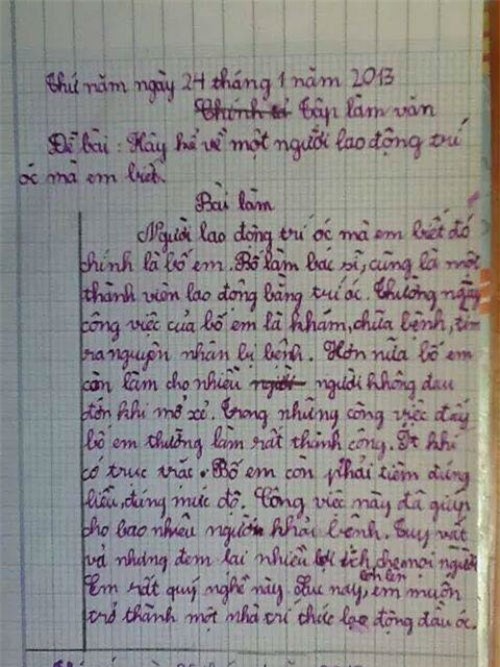 Thứ năm ngày 24 tháng 1 năm 2013
Chính tả Tập làm văn
Đề bài : Hãy kể về một người lao động trí
óc mà em biết.
Bài làm
Người lao động trí óc mà em biết đó
chính là bố em. Bố làm bác sĩ, cũng là một
thành viên lao động bằng trí óc. Thường ngày
công việc của bố em là khám, chữa bệnh, tìm
ra nguyên nhân bị bệnh. Hơn nữa bố em
còn làm cho nhiều người người không đau
đớn khi mổ xẻ. Trong những công việc đấy
bố em thường làm rất thành công. Ít khi
có trục trặc. Bố em còn phải tiêm đúng
liều, đúng mức độ. Công việc này đã giúp
cho bao nhiêu người khỏi bệnh. Tuy vất
vả nhưng đem lại nhiều lợi ích cho mọi người
Em rất quý nghề này. Sau này lớn lên, em muốn
trở thành một nhà trí thức lao động đầu óc.